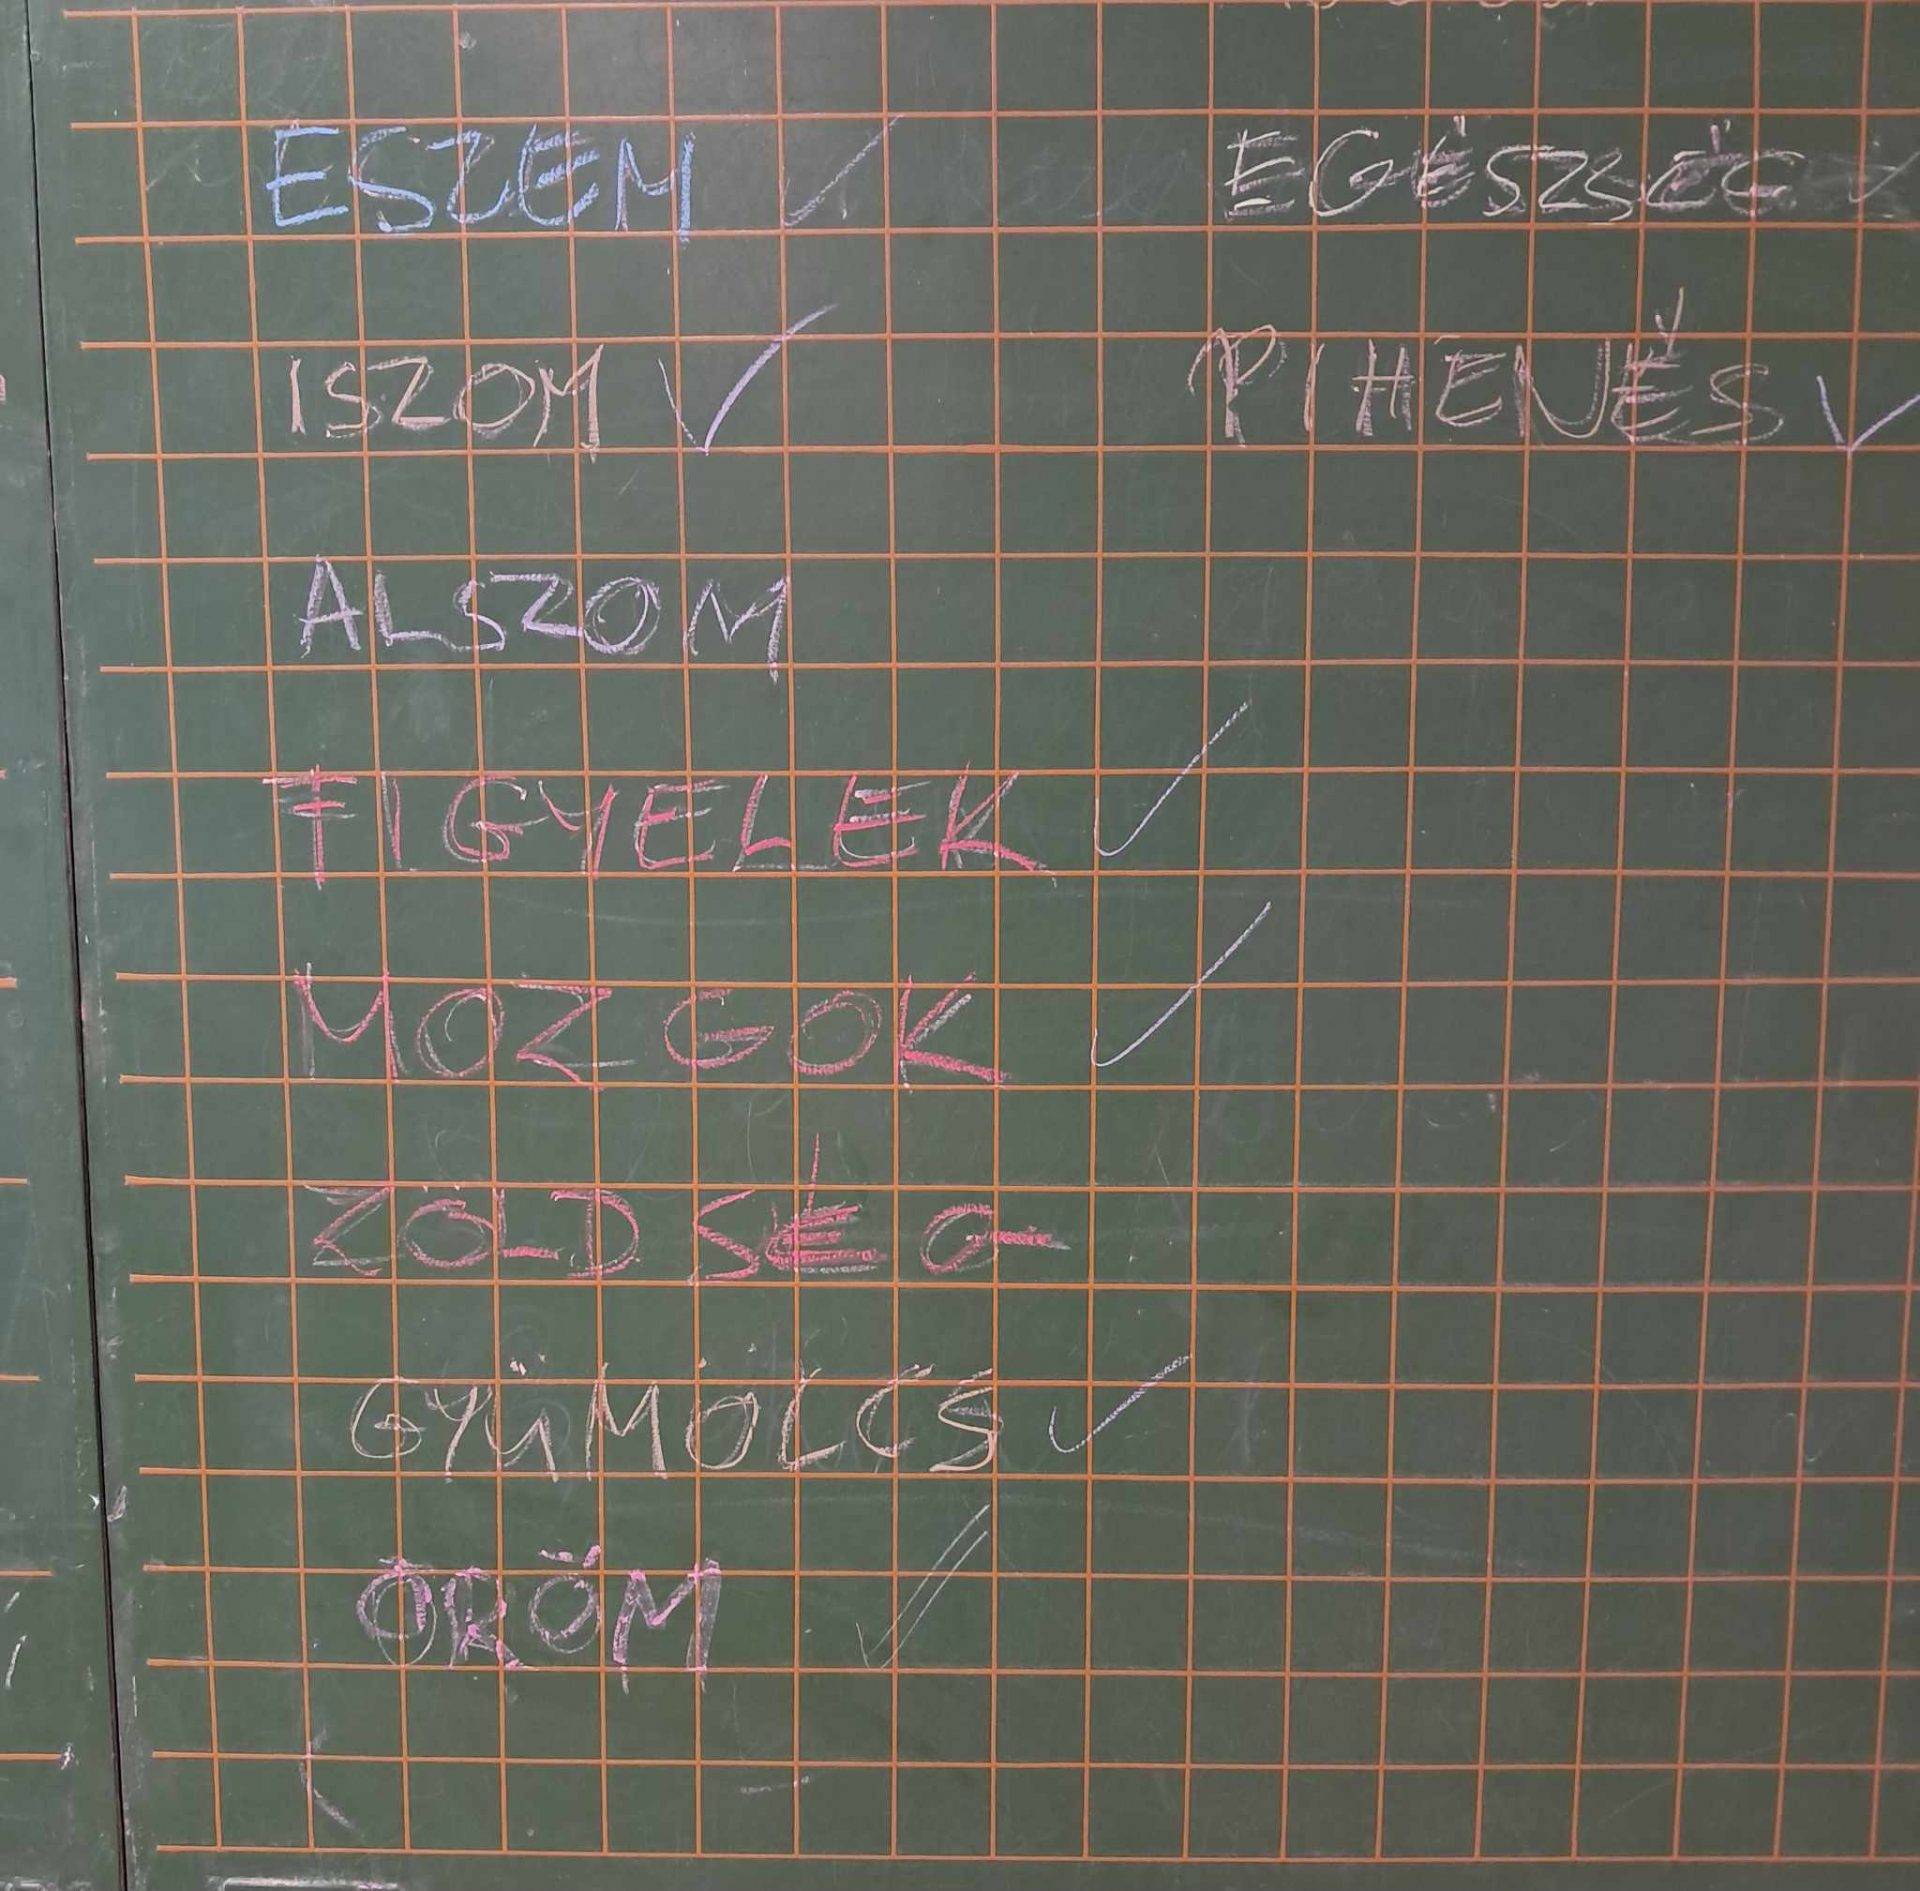 ESZEM ✓ EGÉSZSÉG ✓
ISZOM ✓ PIHENÉS ✓
ALSZOM
FIGYELEK ✓
MOZGOK ✓
ZÖLDSÉG
GYÜMÖLCS ✓
ÖRÖM ✓